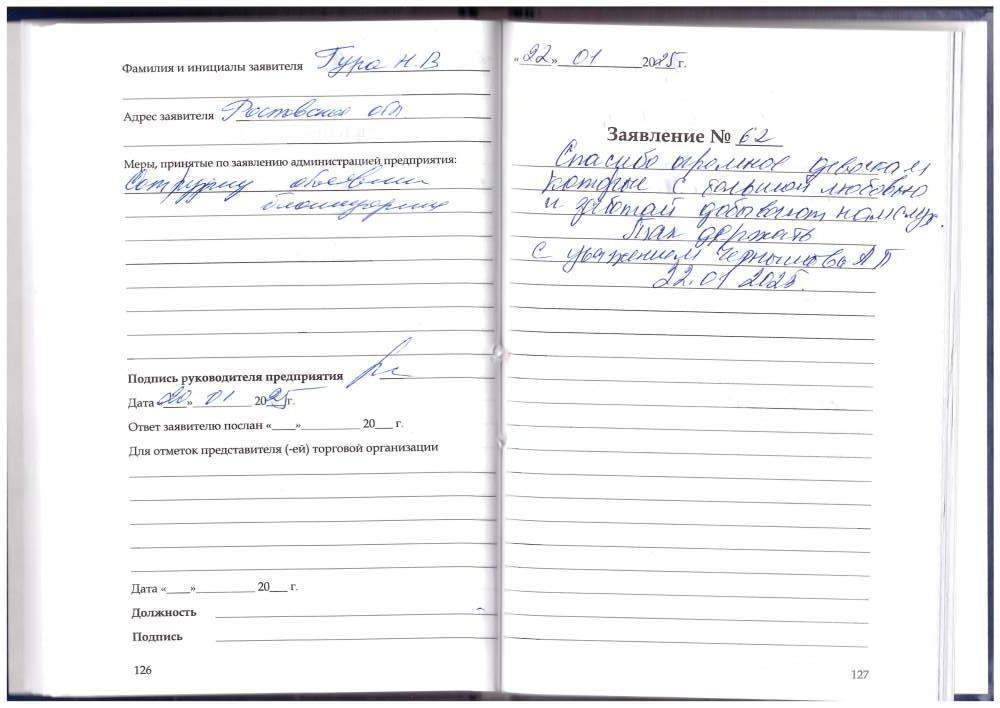 Фамилия и инициалы заявителя Гура Н.В
Адрес заявителя Ростовская обл.
Меры, принятые по заявлению администрацией предприятия:
Сотруднику объявили
благодарность
Подпись руководителя предприятия
Дата «20»01 2025г.
Ответ заявителю послан «____»__________ 20___ г.
Для отметок представителя (-ей) торговой организации
Дата «____»__________ 20___ г.
Должность
Подпись
126
«22» 01 2025 г.
Заявление № 62
Спасибо огромное девочкам
которые с большой любовью
и заботой добывают нам слух.
Так держать
С уважением Чернышова А П
22.01 2025.
127